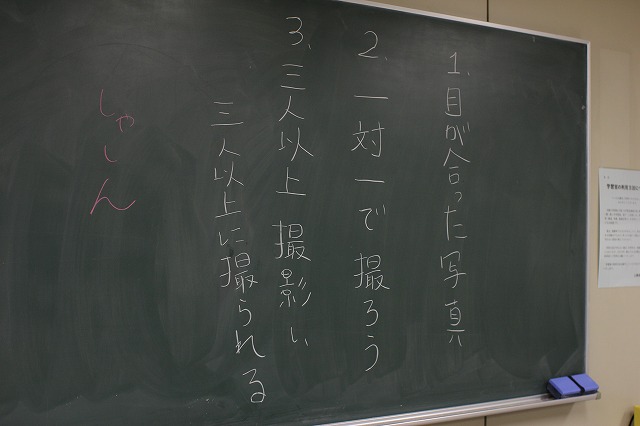 1、目が合った写真
2、一対一で撮ろう
3、三人以上 撮影い
三人以上に撮られる
しゃしん